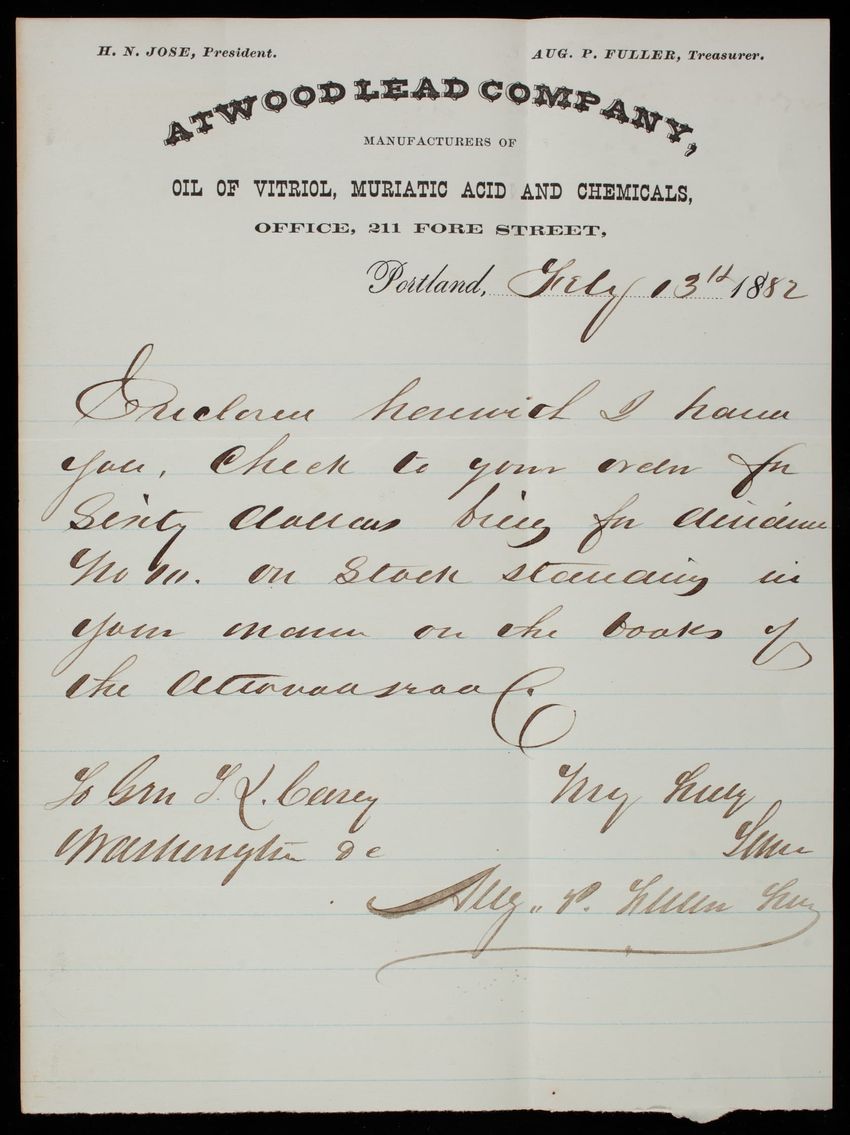 H. N. JOSE, President. AUG. P. FULLER, Treasurer.
ATWOOD LEAD COMPANY,
MANUFACTURERS OF
OIL OF VITRIOL, MURIATIC ACID AND CHEMICALS,
OFFICE, 211 FORE STREET,
Portland, Feby 13th 1882
Enclosed herewith I hand
you, Check to your order for
Sixty dollars being for dividend
No 10. on Stock standing in
your name on the books of
the Atwood Lead Co
To Gen T. L. Casey Very Truly
Washington DC Yours
Aug. P. Fuller Treas